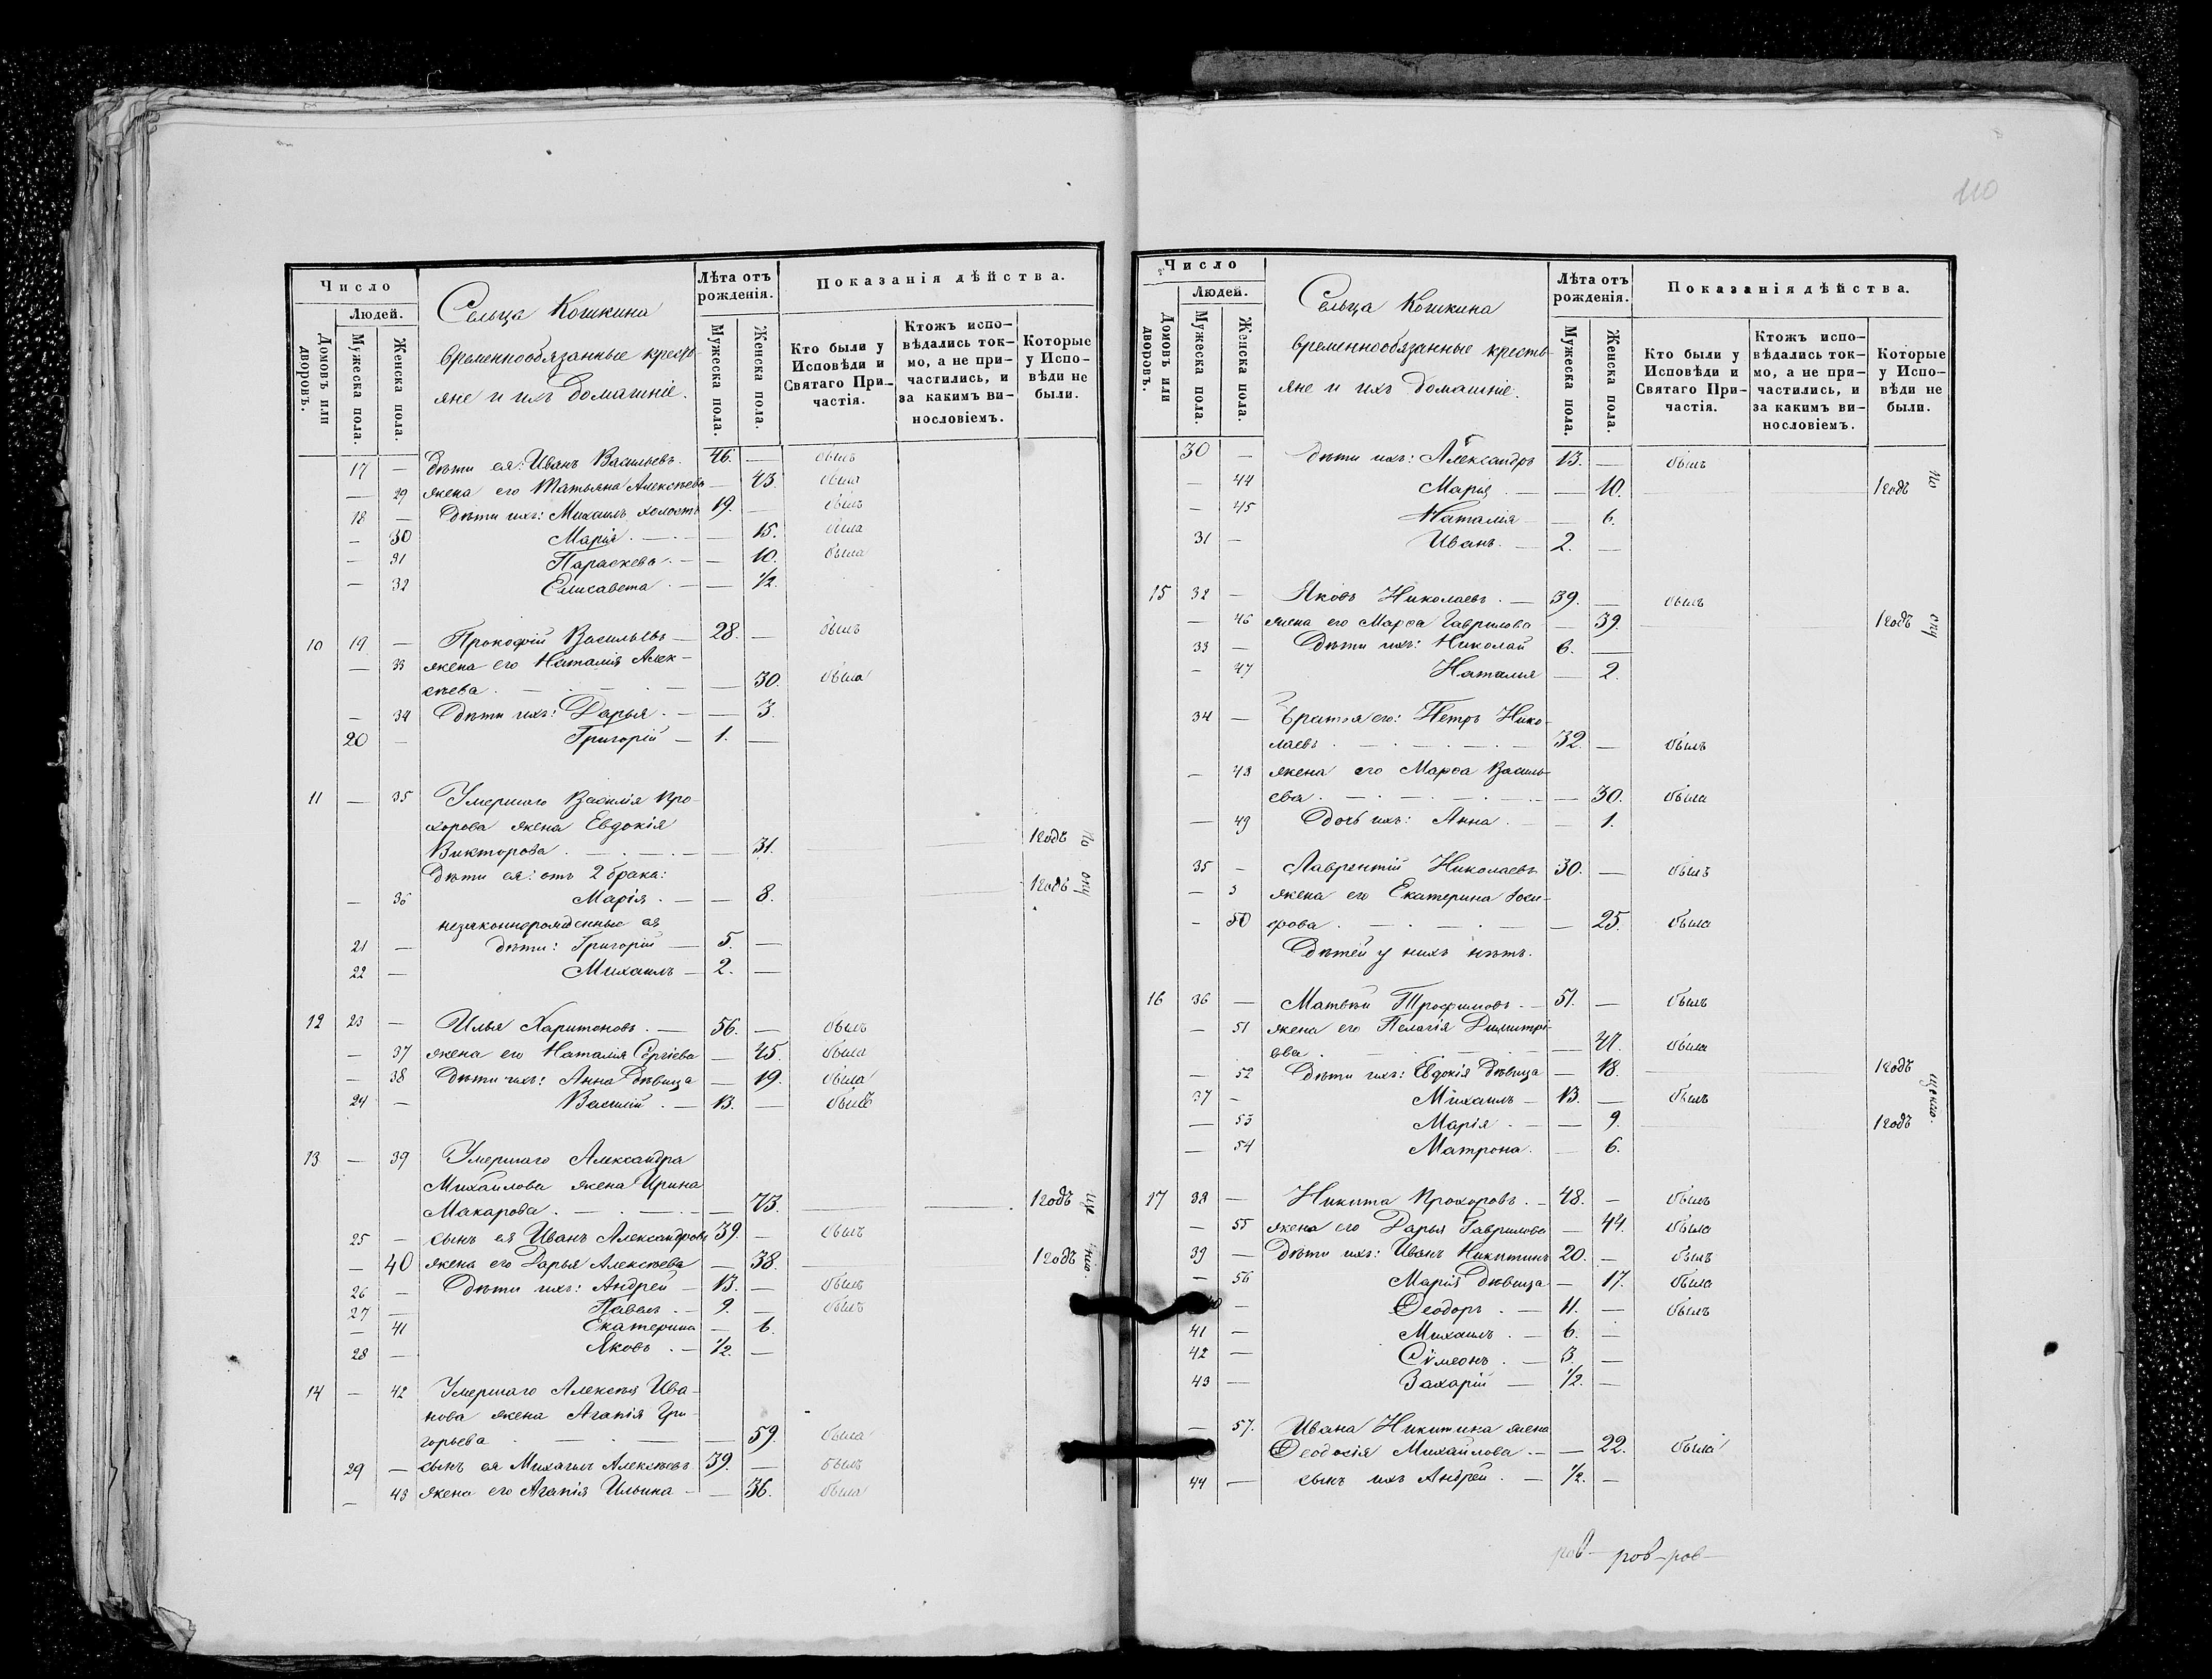 110
Число
Людей.
Домовъ или дворовъ.
Мужеска пола.
Женска пола.
Сельца Кошкина
временнообязанные кресть-
яне и ихъ домашніе.
Лѣта отъ рожденія.
Мужеска пола.
Женска пола.
Показанія дѣйства.
Кто были у Исповѣди и Святаго При-частія.
Ктожъ испо-вѣдались ток-мо, а не при-частились, и за какимъ ви-нословіемъ.
Которые у Испо-вѣди не были.
17 — дѣти ея: Иванъ Васильевъ. 46. — былъ
— 29 жена его Татьяна Алексѣева — 43. была
18 — Дѣти ихъ: Михаилъ холостъ 19. — былъ
— 30 Марія — 15. была
— 31 Параскева — 10. была
— 32 Елисавета — 1/2.
10 19 — Прокофій Васильевъ — 28. — былъ
— 33 жена его Наталія Алек-
сѣева — 30. была
— 34 Дѣти ихъ: Дарья — 3.
20 — Григорій — 1. —
11 — 35 Умершаго Василія Про-
хорова жена Евдокія
Викторова — 31. 1 годъ по
Дѣти ея: отъ 2 брака:
— 36 Марія — 8. 1 годъ опу
незаконнорожденные ея
21 — дѣти: Григорій — 5. —
22 — Михаилъ — 2. —
12 23 — Илья Харитоновъ — 56. — былъ
— 37 жена его Наталія Сергіева — 45. была
— 38 Дѣти ихъ: Анна дѣвица — 19. была
24 — Василій — 13. — былъ
13 — 39 Умершаго Александра
Михайлова жена Ирина
Макарова — 73. 1 годъ ще
25 — сынъ ея Иванъ Александровъ 39. — былъ
— 40 жена его Дарья Алексѣева — 38. 1 годъ нію.
26 — Дѣти ихъ: Андрей — 13. — былъ
27 — Павелъ — 9. — былъ
— 41 Екатерина — 6.
28 — Яковъ — 1/2. —
14 — 42 Умершаго Алексѣя Ива-
нова жена Агапія Гри-
горьева — 59. была
29 — сынъ ея Михаилъ Алексѣевъ 39. — былъ
— 43 жена его Агапія Ильина — 36. была
Число
Людей.
Домовъ или дворовъ.
Мужеска пола.
Женска пола.
Сельца Кошкина
временнообязанные кресть-
яне и ихъ домашніе.
Лѣта отъ рожденія.
Мужеска пола.
Женска пола.
Показанія дѣйства.
Кто были у Исповѣди и Святаго При-частія.
Ктожъ испо-вѣдались ток-мо, а не при-частились, и за какимъ ви-нословіемъ.
Которые у Испо-вѣди не были.
30 — дѣти ихъ: Александръ 13. — былъ
— 44 Марія — 10. 1 годъ по
— 45 Наталія — 6.
31 — Иванъ — 2. —
15 32 — Яковъ Николаевъ — 39. — былъ
— 46 жена его Марѳа Гаврилова — 39. 1 годъ опу
33 — Дѣти ихъ: Николай 6. —
— 47 Наталия — 2.
34 — Братья его: Петръ Нико-
лаевъ — 32. — былъ
— 48 жена его Марѳа Василь-
ева — 30. была
— 49 Дочь ихъ: Анна — 1.
35 — Лаврентій Николаевъ 30. — былъ
— жена его Екатерина
— 50 — 25. была
Дѣтей у нихъ нѣтъ.
16 36 — Матвѣй Трофимовъ — 51. — былъ
— 51 жена его Пелагія Димитрі-
ева — 47. была
— 52 Дѣти ихъ: Евдокія дѣвица — 18. 1 годъ
37 — Михаилъ — 13. — былъ
щенію.
— 53 Марія — 9. 1 годъ
— 54 Матрона — 6.
17 38 — Никита Прохоровъ — 48. — былъ
— 55 жена его Дарья Гаврилова — 44. была
39 — Дѣти ихъ: Иванъ Никитинъ 20. — былъ
— 56 Марія дѣвица — 17. была
40 — Ѳеодоръ — 11. — былъ
41 — Михаилъ — 6. —
42 — Сѵмеонъ — 3. —
43 — Захарій — 1/2. —
— 57. Ивана Никитина жена
Ѳеодосія Михайлова — 22. была
44 — сынъ ихъ Андрей — 1/2. —
ров- ров-ров-